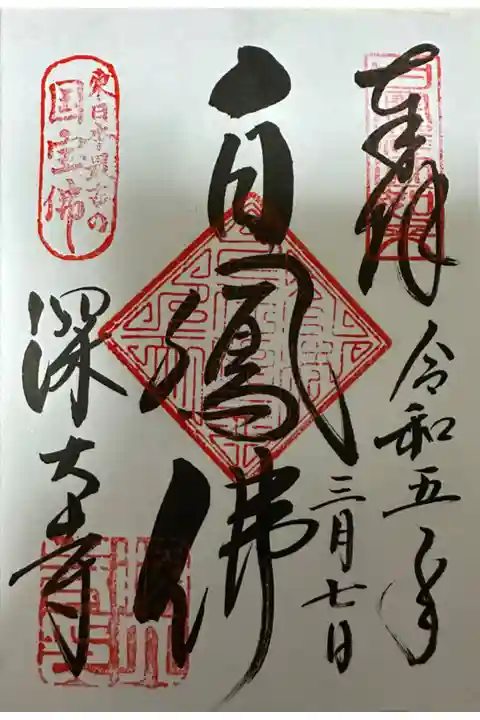 奉拝
令和五年
三月七日
白鳳佛
東日本最古の
国宝佛
深大寺